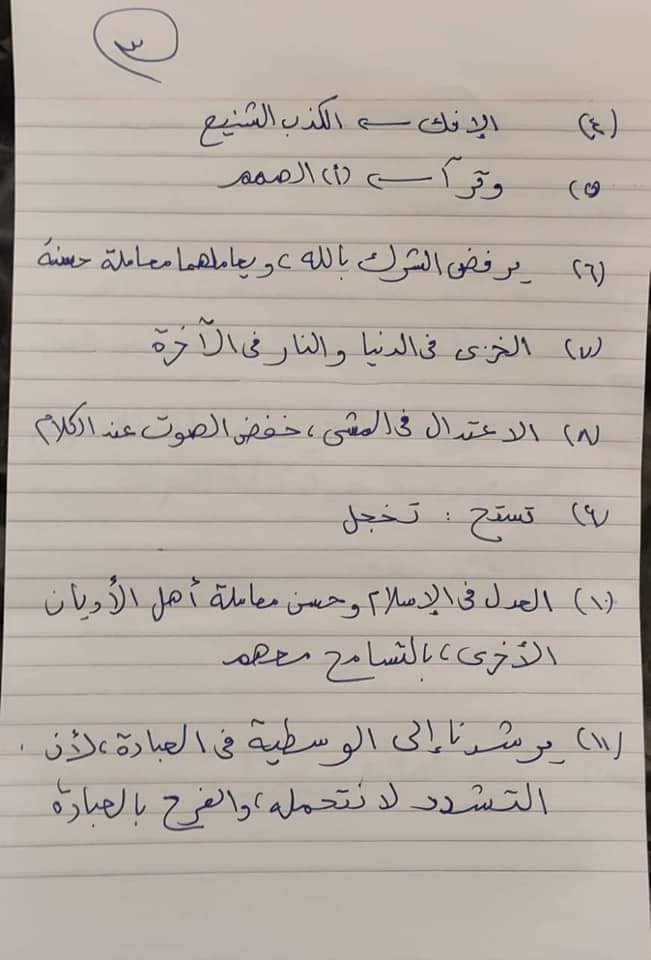 ٣
(٤) الإفك ← الكذب الشنيع
(٥ وقرآ ← (أ) الصمم
(٦) يرفض الشرك بالله، ويعاملهما معاملة حسنة
(٧) الخزى فى الدنيا والنار فى الآخرة
(٨) الاعتدال فى المشى، خفض الصوت عند الكلام
(٩) تستح : تخجل
(١٠) العدل فى الإسلام وحسن معاملة أهل الأديان
الأخرى، بالتسامح معهم
(١١) يرشدنا إلى الوسطية فى العبادة، لأن
التشدد لا نتحمله، والفرح بالعبادة